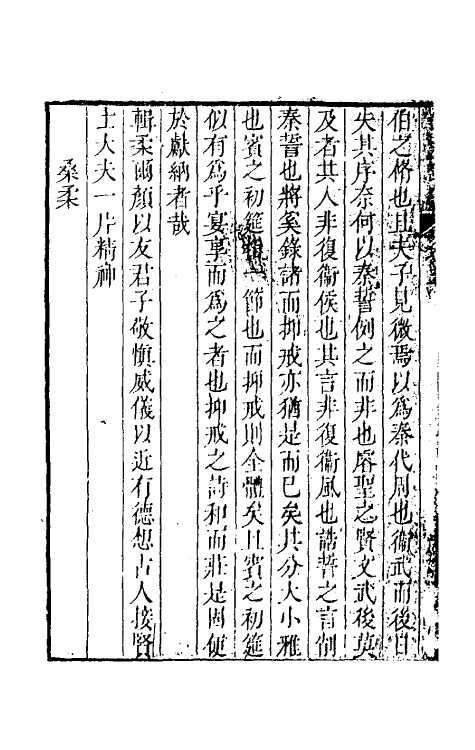 伯之脩也且夫子見微焉以爲秦代周也衞武而後日
失其序奈何以秦誓例之而非也睿聖之賢文武後莫
及者其人非復衞侯也其言非復衞風也誥誓之言削
秦誓也將奚錄諸而抑戒亦猶是而已矣其分大小雅
也賓之初筵一節也而抑戒則全體矣且賓之初筵
似有爲乎宴事而爲之者也抑戒之詩和而莊是固便
於獻納者哉
輯柔爾顏以友君子敬慎威儀以近有德想古人接賢
士大夫一片精神
桑柔